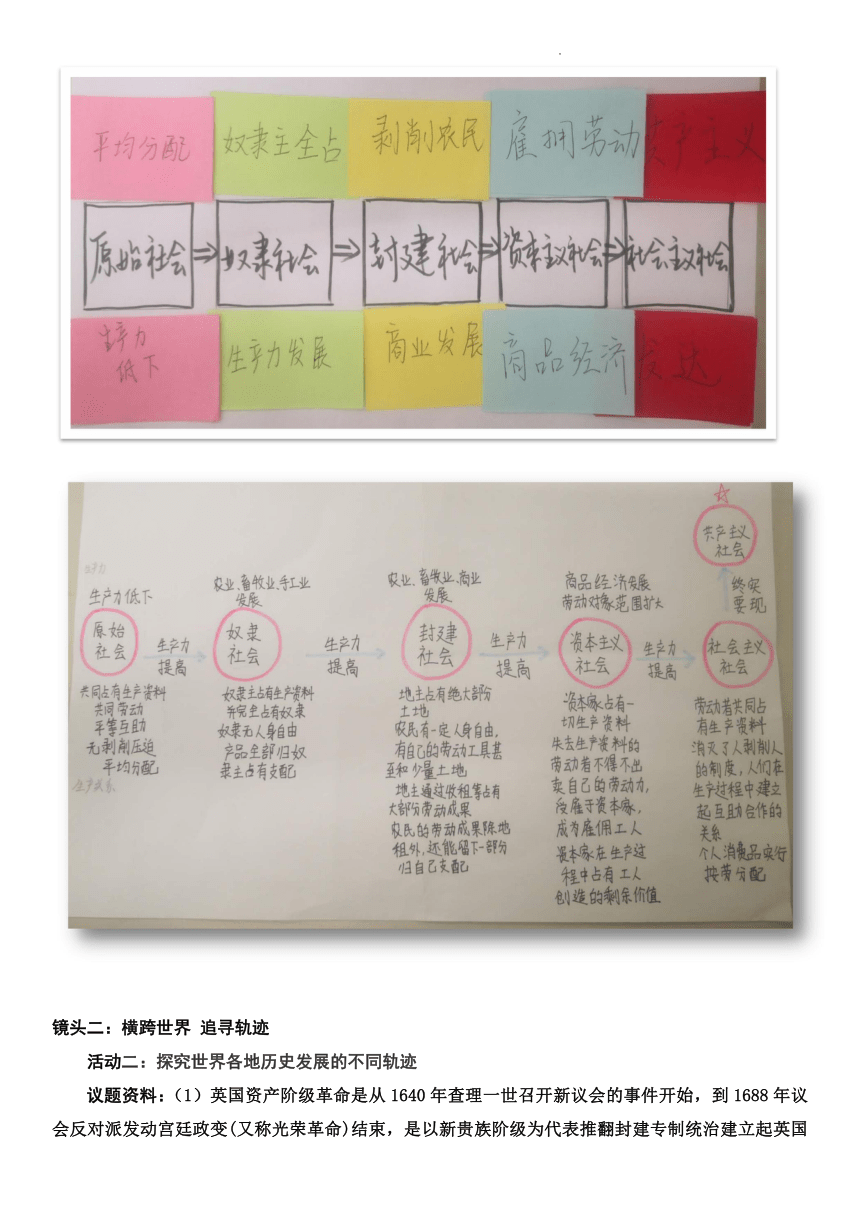 平均分配 奴隶主全占 剥削农民 雇拥劳动 资产主义
原始社会 ⇒ 奴隶社会 ⇒ 封建社会 ⇒ 资本主义社会 ⇒ 社会主义社会
生产力
低下
生产力发展
商业发展
商品经济 发达
☆
共产主义
社会
终实
要现
生产力低下
原始
社会
共同占有生产资料
共同劳动
平等互助
无剥削压迫
平均分配
生产关系
生产力
提高
农业、畜牧业、手工业
发展
奴隶
社会
奴隶主占有生产资料
并完全占有奴隶
奴隶无人身自由
产品全部归奴
隶主占有支配
生产力
提高
农业、畜牧业、商业
发展
封建
社会
地主占有绝大部分
土地
农民有一定人身自由,
有自己的劳动工具甚
至和少量土地
地主通过收租等占有
大部分劳动成果
农民的劳动成果除地
租外,还能留下一部分
归自己支配
生产力
提高
商品经济发展
劳动对象范围扩大
资本主义
社会
资本家占有一
切生产资料
失去生产资料的
劳动者不得不出
卖自己的劳动力,
受雇于资本家,
成为雇佣工人
资本家在生产过
程中占有工人
创造的剩余价值
生产力
提高
社会主义
社会
劳动者共同占
有生产资料
消灭了人剥削人
的制度,人们在
生产过程中建立
起互助合作的
关系
个人消费品实行
按劳分配
镜头二：横跨世界 追寻轨迹
活动二：探究世界各地历史发展的不同轨迹
议题资料：（1）英国资产阶级革命是从 1640 年查理一世召开新议会的事件开始，到 1688 年议
会反对派发动宫廷政变(又称光荣革命)结束，是以新贵族阶级为代表推翻封建专制统治建立起英国